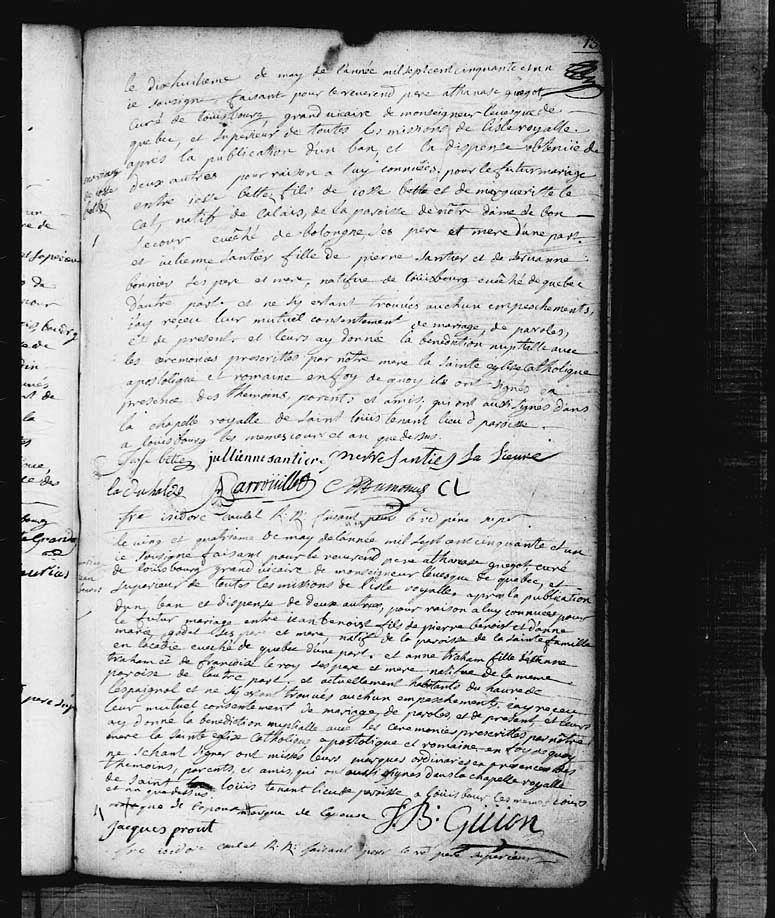 15
le dixhuitieme de may de l'année mil sept cent cinquante et un
ie soussigné faisant pour le reverend pere athanase guegot
curé de louisbourg grand vicaire de monseigneur leveque de
quebec, et superieur de toutes les missions de lisle royalle
apres la publication d'un ban, et la dispense obtenüe de
deux autres pour raison a luy connües, pour le futur mariage
entre iosse bette fils de iosse bette et de margueritte le
cat, natif de calais, de la paroisse de nôtre dame de bon
secour evêché de bologne ses pere et mere d'une part.
et iulienne santier fille de pierre santier et de servanne
bonnier ses pere et mere, natifue de loüisbourg evêché de quebec
d'autre part. et ne s'y estant trouvés auchun empeschements,
iay receu leur mutuel consentement de mariage, de paroles,
et de present et leurs ay donné la benediction nuptialle avec
les ceremonies prescrittes par notre mere la sainte eglise catholique
apostolique et romaine en foy de quoy ils ont signés en
presence des themoins, parents et amis, qui ont aussi signés dans
la chapelle royalle de saint loüis tenant lieu d paroisse
a loüisbourg les memes iour et an que dessus.
mariage
de iosse
bette
iosse bette jullienne santier pierre santier La Lieuvre
la duhalde Larrouillet Cl
fre isidore caulet R: R: faisant pour le rd pére super
le ving et quatrieme de may de lannée mil sept cent cinquante et un
ie soussigné faisant pour le reverend pere athanase guegot curé
de loüisbourg grand vicaire de monseigneur leveque de quebec, et
superieur de toutes les missions de l'isle royalle apres la publication
d'un ban et dispense de deux autres, pour raison a luy connües pour
le futur mariage entre iean benoist fils de pierre benoist et d'anne
marie godet ses pere et mere, natif de la paroisse de la sainte famille
en lacadie evêché de quebec d'une part. et anne traham fille d'ethiene
traham et de francoise le roy ses pere et mere natifue de la meme
paroisse de l'autre part, et actuellement habitants du haure de
lespaignol et ne s'y estant trouvés auchun empeschements iay receu
leur mutuel consentement de mariage de paroles et de present et leurs
ay donné la benediction nuptialle avec les ceremonies prescrittes par nôtre
mere la sainte eglise catholique apostolique et romaine en foy de quoy
ne schant signer ont mises leurs marques ordinaires en presences des
themoins, parents, et amis, qui ont aussi signes dans la chapelle royalle
de saint loüis tenant lieu de paroisse a loüisbour les memes iours
et an que dessus
marque de lepoux marque de lepouse J. B. Guion
jacques prout
fre isidore caulet R: R: faisant pour le rd pere superieur